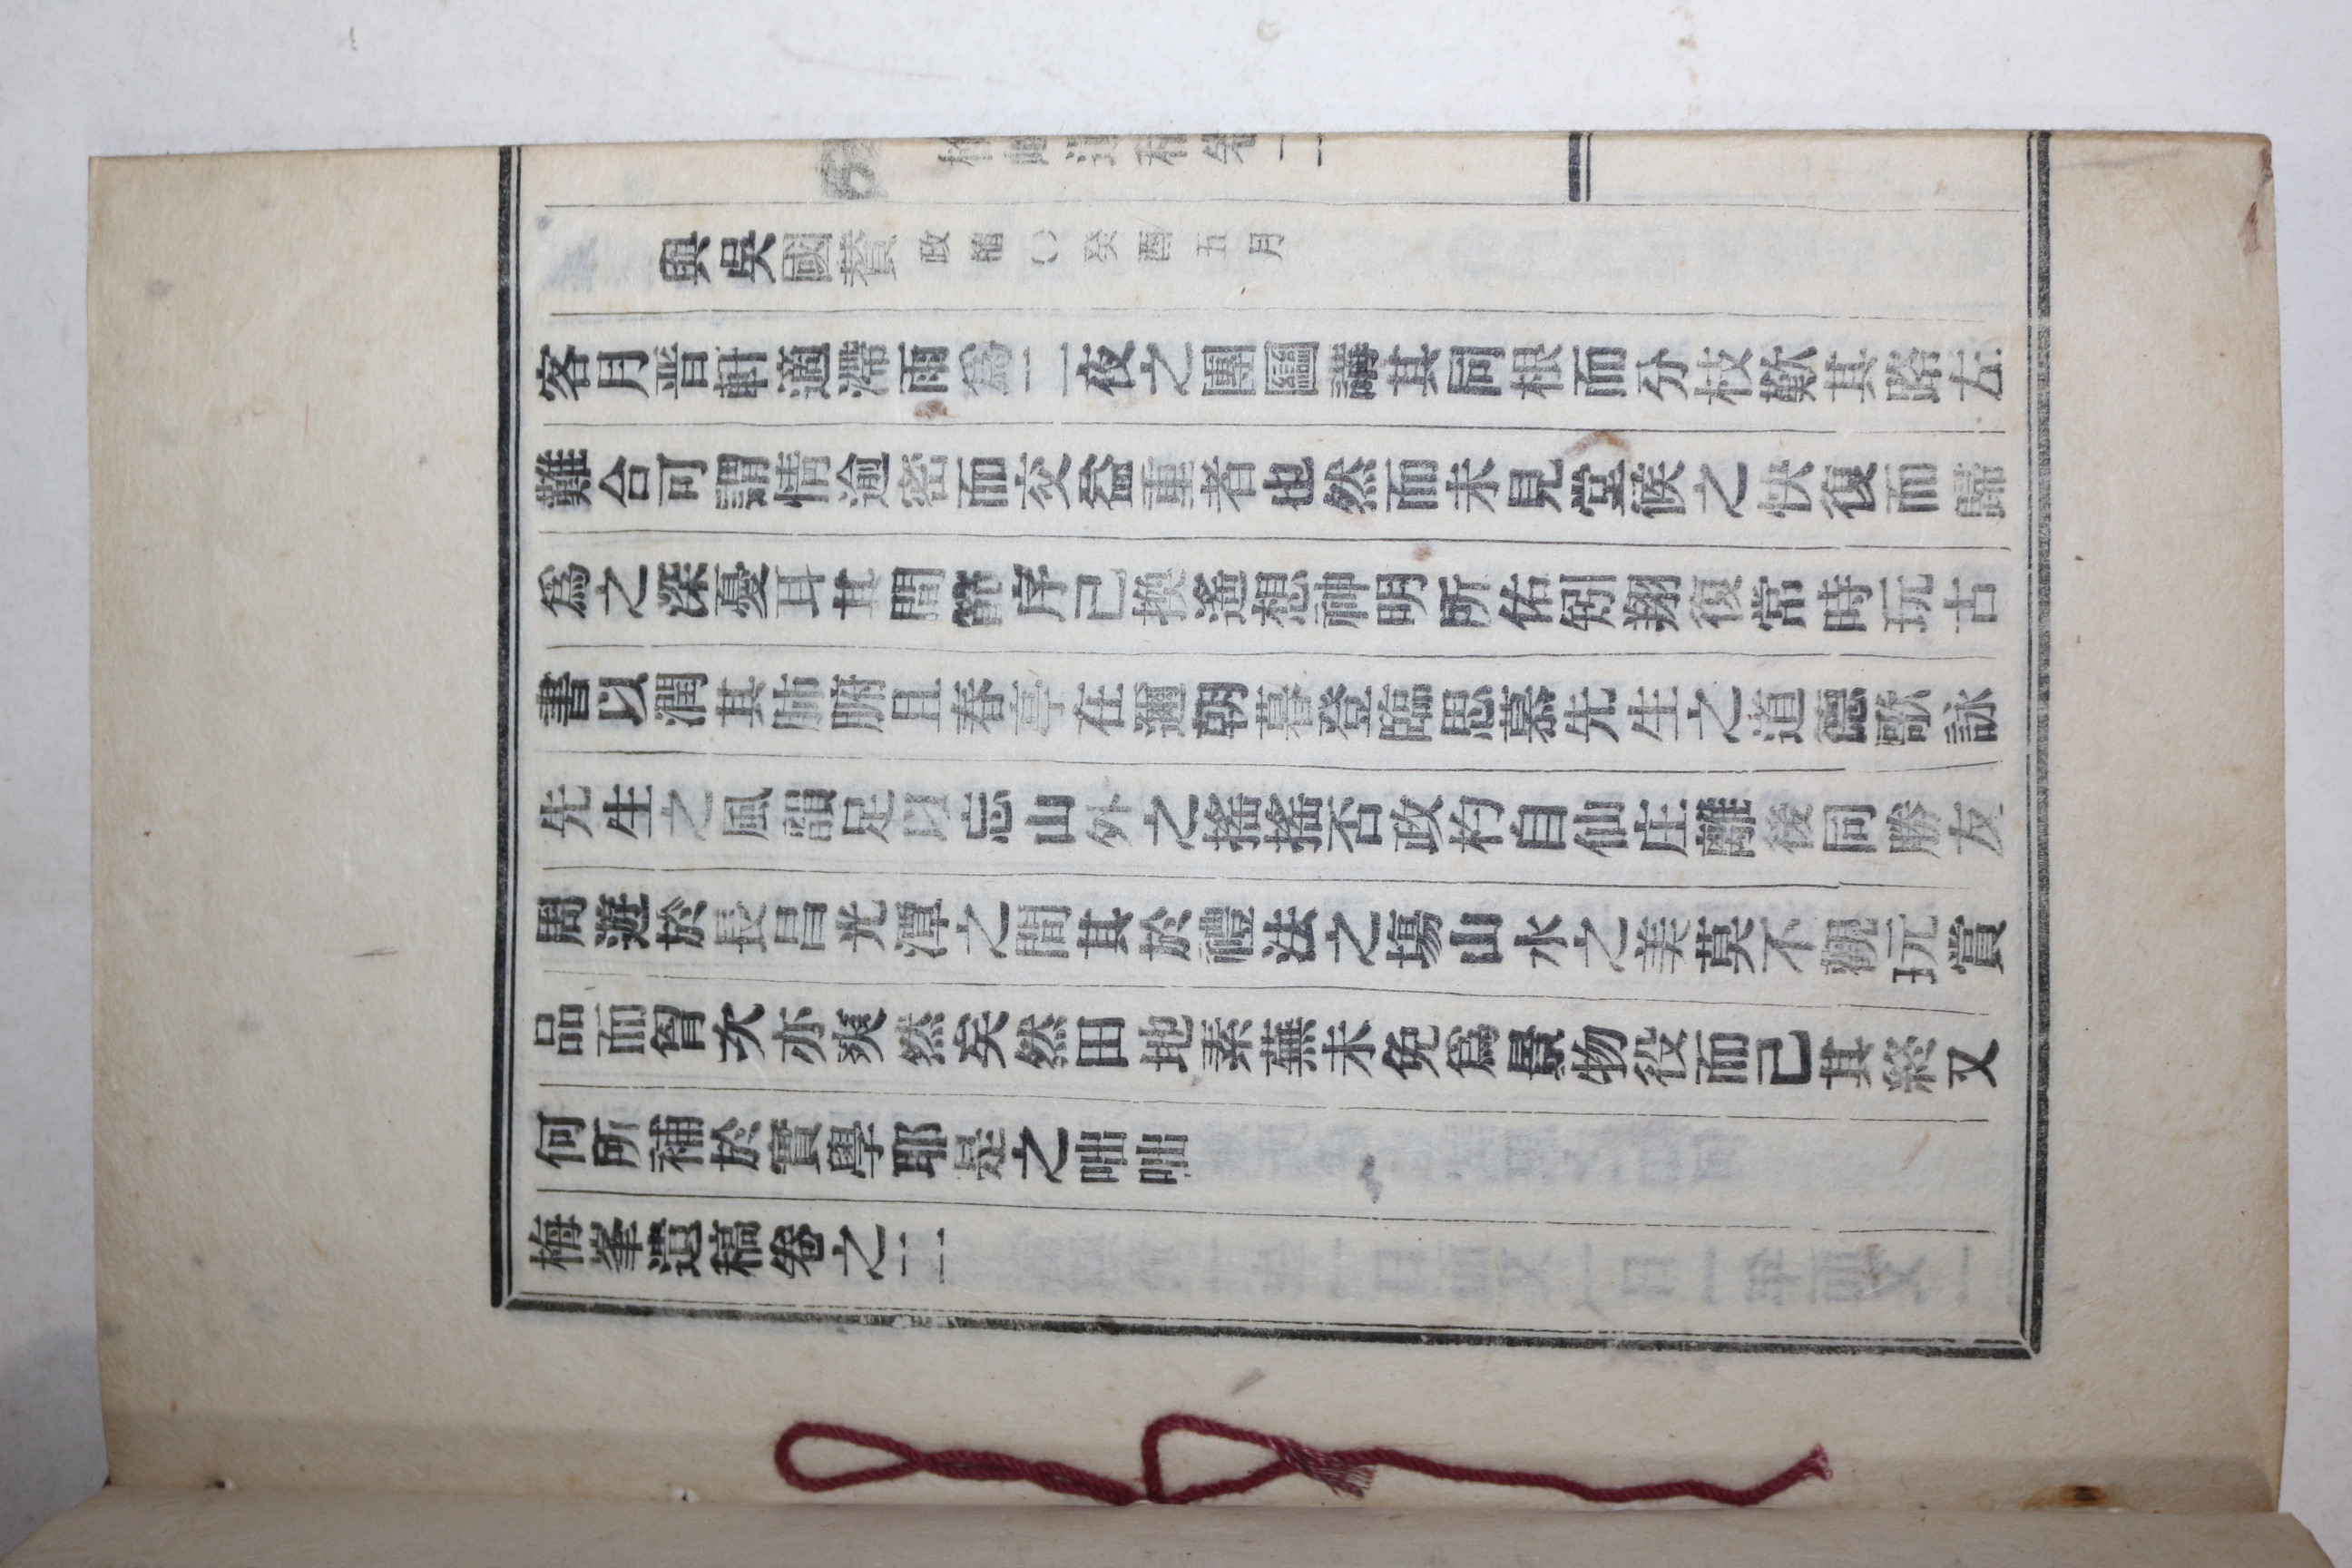 梅峰遺稿卷二
與吳國賛政稽()癸酉五月
客月晋軒適滯雨爲二夜之團圞講其同根而分枝歎其路左
難合可謂情逾密而交益重者也然而未見堂候之快復而歸
爲之深憂耳其間節序已換遙想神明所佑矧翔復常時玩古
書以潤其肺腑且春亭在邇朝暮登臨思慕先生之道德歌詠
先生之風韻足以忘山外之搖搖否政杓自仙庄離後同勝友
周遊於長昌光潭之間其於禮法之塲山水之美莫不觀玩賞
品而胷次亦爽然矣然田地素蕪未免爲景物役而已其終又
何所補於實學耶是之咄咄
梅峯遺稿卷之二